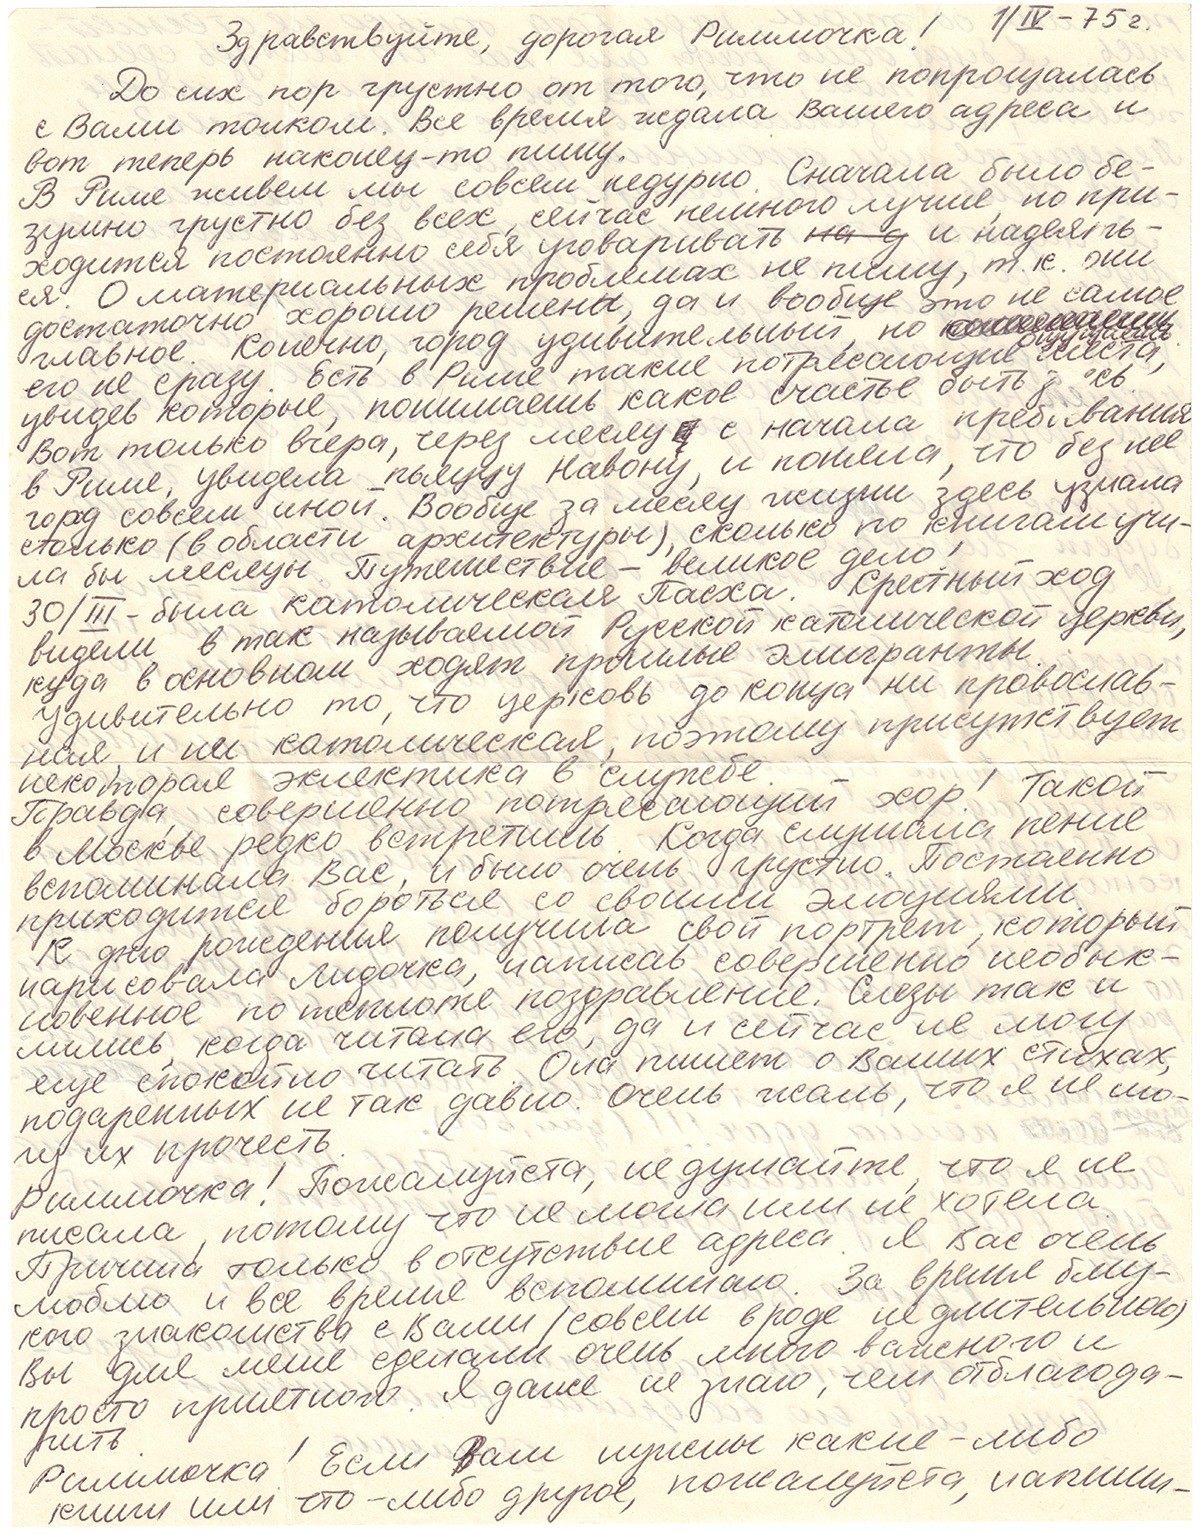 1/IV – 75 г.
Здравствуйте, дорогая Риммочка!
До сих пор грустно от того, что не попрощалась
с Вами толком. Все время ждала Вашего адреса и
вот теперь наконец-то пишу.
В Риме живем мы совсем недурно. Сначала было бе-
зумно грустно без всех, сейчас немного лучше, но при-
ходится постоянно себя уговаривать на д и надеять-
ся. О материальных проблемах не пишу, т.к. они
достаточно хорошо решены, да и вообще это не самое
главное. Конечно, город удивительный, но ощущаешь
его не сразу. Есть в Риме такие потрясающие места,
увидев которые, понимаешь какое счастье быть
Вот только вчера, через месяц с начала пребывания
в Риме, увидела пьяццу Навону, и поняла, что без нее
город совсем иной. Вообще за месяц жизни здесь узнала
столько (в области архитектуры), сколько по книгам учи-
ла бы месяцы. Путешествие – великое дело!
30/III – была католическая Пасха. Крестный ход
видели в так называемой Русской католической церкви,
куда в основном ходят прошлые эмигранты.
Удивительно то, что церковь до конца ни провослав-
ная, и ни католическая, поэтому присутжствует
некоторая эклектика в службе. –
Правда, совершенно потрясающий хор! Такой
в Москве редко встретишь. Когда слушала пение
вспоминала Вас, и было очень грустно. Постоенно
приходится бороться со своими эмоциями.
К дню рождения получила свой портрет, который
нарисовала Лидочка, написав совершенно необык-
новенное по теплоте поздравление. Слезы так и
лились, когда читала его, да и сейчас не могу
еще спокойно читать. Она пишет о Ваших стихах,
подаренных не так давно. Очень жаль, что я не мо-
гу их прочесть.
Риммочка! Пожалуйста, не думайте, что я не
писала, потому что не могла или не хотела.
Причина только в отсутствие адреса. Я Вас очень
люблю и все время вспоминаю. За время близ-
кого знакомства с Вами (совсем вроде не длительного)
Вы для меня сделали очень много важного и
просто приятного. Я даже не знаю, чем отблагода-
рить.
Риммочка! Если Вам нужны какие-либо
книги или что-либо другое, пожалуйста, напиши-